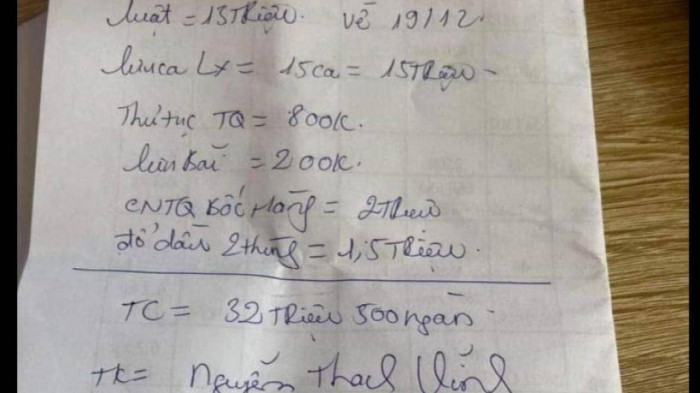 luật = 13Triệu. về 19/12.
lưu ca Lx = 15ca = 15Triệu -
Thủ tục TQ = 800K.
lưu Bãi = 200K.
CNTQ Bốc Hàng = 2Triệu
đổ dầu 2thùng = 1,5Triệu.
TC = 32Triệu 500ngàn
TK = Nguyễn Thach